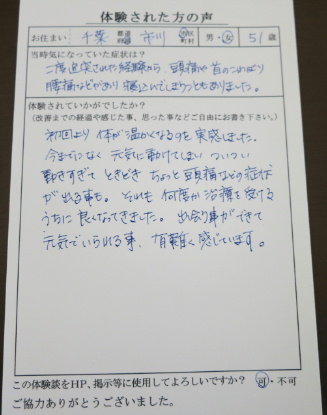 体験された方の声
お住まい 千葉 都道府県 市川 市区町村 男・女 51才
当時気になっていた症状は?
二度追突された経験から、頭痛や首のこわばり
腰痛などがあり寝込んでしまうこともありました。
体験されていかがでしたか?
(改善までの経過や感じた事、思った事などご自由にお書き下さい。)
初回より体が温かくなるのを実感しました。
今までになく元気に動けてしまい、ついつい
動きすぎてときどきちょっと頭痛などの症状
が出る事も。それも何度か治療を受ける
うちに良くなってきました。出会う事ができて
元気でいられる事、有難く感じています。
この体験談をHP、掲示等に使用してよろしいですか? 可・不可
ご協力ありがとうございました。